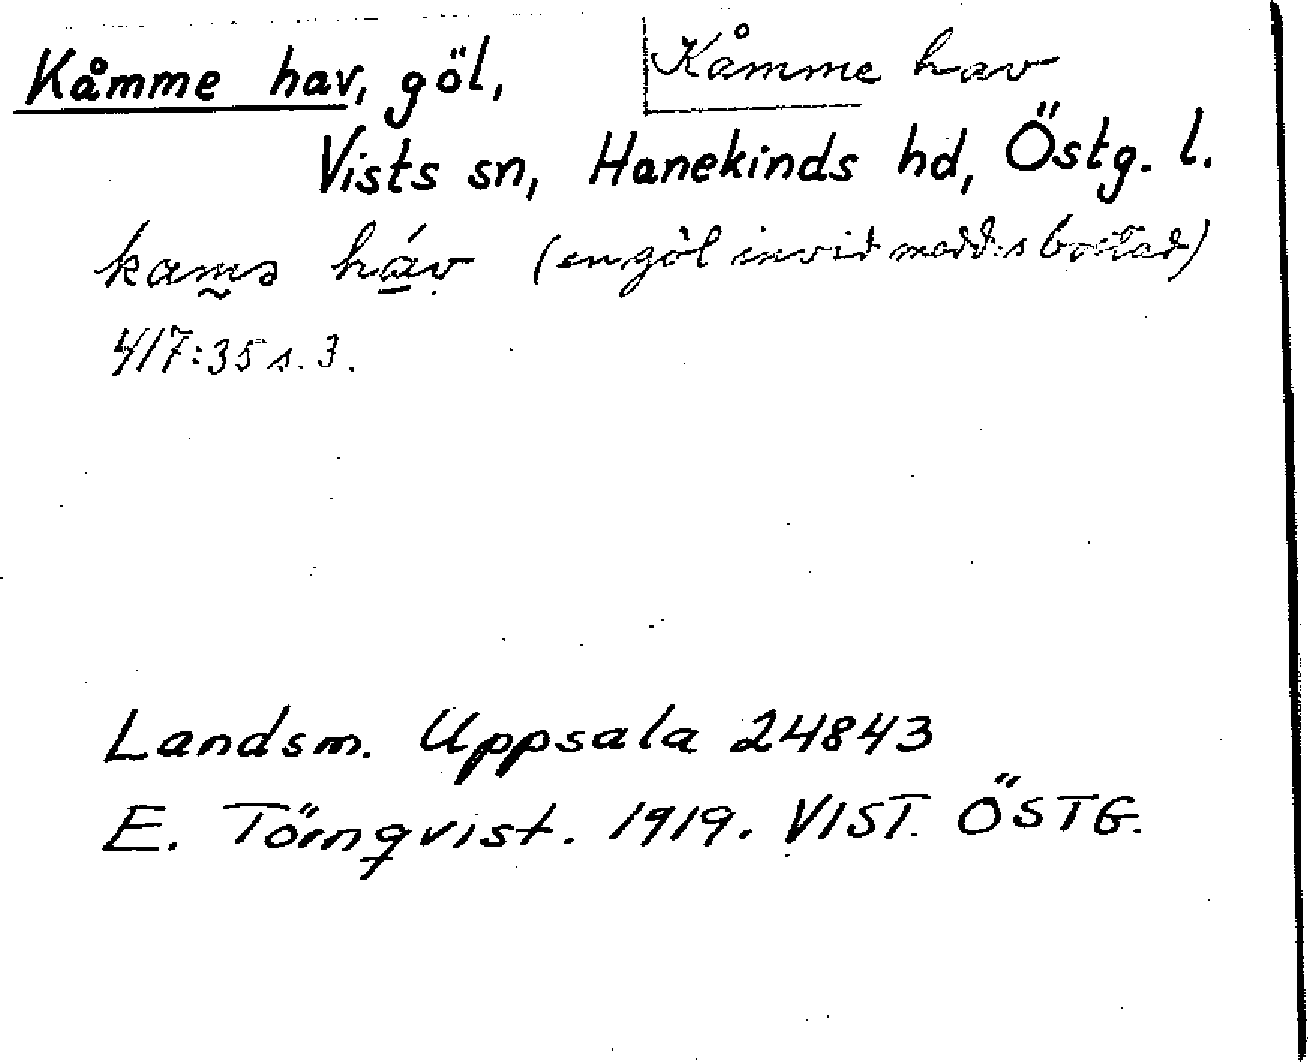 Kåmme hav, göl, Kåmme hav
Vists sn, Hanekinds hd, Östg. l.
håv (en göl invid
417:35 s. 3.
Landsm. Uppsala 24843
E. Törnqvist. 1919. VIST. ÖSTG.